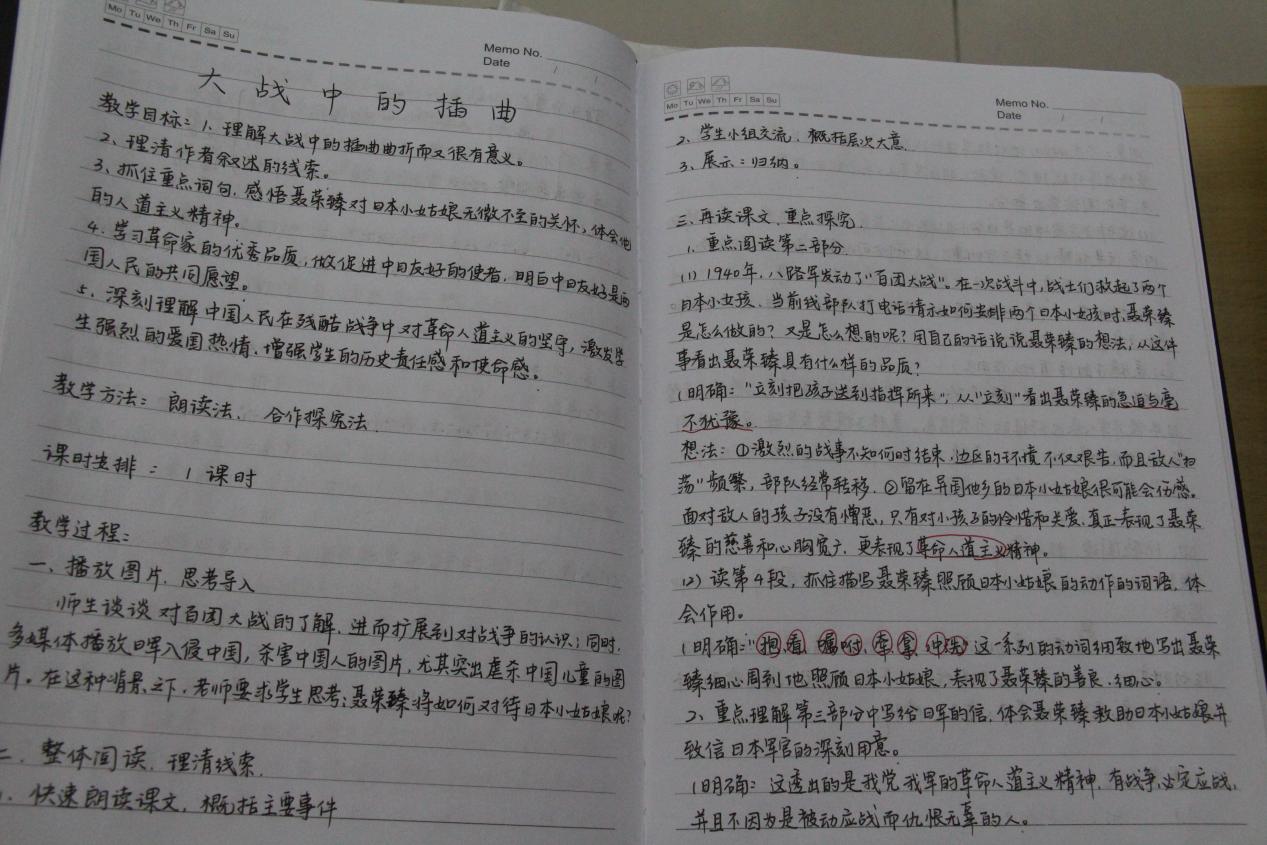 Mo Tu We Th Fr Sa Su
Memo No.
Date / /
大战中的插曲
教学目标：1、理解大战中的插曲曲折而又很有意义。
2、理清作者叙述的线索。
3、抓住重点词句，感悟聂荣臻对日本小姑娘无微不至的关怀，体会他
的人道主义精神。
4、学习革命家的优秀品质，做促进中日友好的使者，明白中日友好是两
国人民的共同愿望。
5、深刻理解中国人民在残酷战争中对革命人道主义的坚守，激发学
生强烈的爱国热情、增强学生的历史责任感和使命感。
教学方法：朗读法、合作探究法
课时安排：1课时
教学过程：
一、播放图片，思考导入
师生谈谈对百团大战的了解，进而扩展到对战争的认识；同时，
多媒体播放日军入侵中国，杀害中国人的图片，尤其突出虐杀中国儿童的图
片。在这种背景之下，老师要求学生思考：聂荣臻将如何对待日本小姑娘呢？
二、整体阅读，理清线索
1、快速朗读课文，概括主要事件
Mo Tu We Th Fr Sa Su
Memo No.
Date / /
2、学生小组交流，概括层次大意
3、展示：归纳。
三、再读课文，重点探究
1、重点阅读第二部分
(1) 1940年，八路军发动了“百团大战”。在一次战斗中，战士们救起了两个
日本小女孩、当前线部队打电话请示如何安排两个日本小女孩时，聂荣臻
是怎么做的？又是怎么想的呢？用自己的话说说聂荣臻的想法，从这件
事看出聂荣臻具有什么样的品质？
(明确：“立刻把孩子送到指挥所来”，从“立刻”看出聂荣臻的急迫与毫
不犹豫。
想法：①激烈的战事不知何时结束，边区的环境不仅艰苦，而且敌人“扫
荡”频繁，部队经常转移。②留在异国他乡的日本小姑娘很可能会伤感。
面对敌人的孩子没有憎恶，只有对小孩子的怜惜和关爱，真正表现了聂荣
臻的慈善和心胸宽广，更表现了革命人道主义精神。
(2) 读第4段，抓住描写聂荣臻照顾日本小姑娘的动作的词语，体
会作用。
(明确：“抱、看、嘱咐、牵、拿、” 这一系列的动词细致地写出聂荣
臻细心周到地照顾日本小姑娘，表现了聂荣臻的善良、细心。
2、重点理解第三部分中写给日军的信，体会聂荣臻救助日本小姑娘并
致信日本军官的深刻用意。
(明确：这透出的是我党我军的革命人道主义精神，有战争，必定应战，
并且不因为是被动应战而仇恨无辜的人。